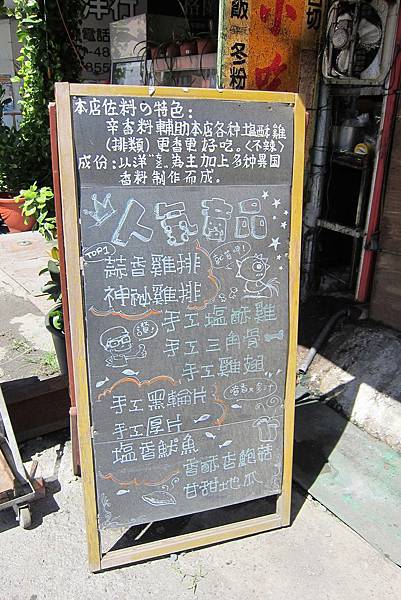 洋行
電話
-48
855
飯
冬粉
小吃
切
本店佐料の特色:
辛香料輔助本店各种塩酥雞
(排類)更香更好吃。<不辣>
成份:以洋蔥為主加上多种異国
香料制作而成。
人氣商品
TOP1
蒜香雞排
神秘雞排
手工塩酥雞
讚
手工三角骨
手工雞翅
手工黑輪片
手工厚片
塩香魷魚
香酥杏鮑菇
甘甜地瓜